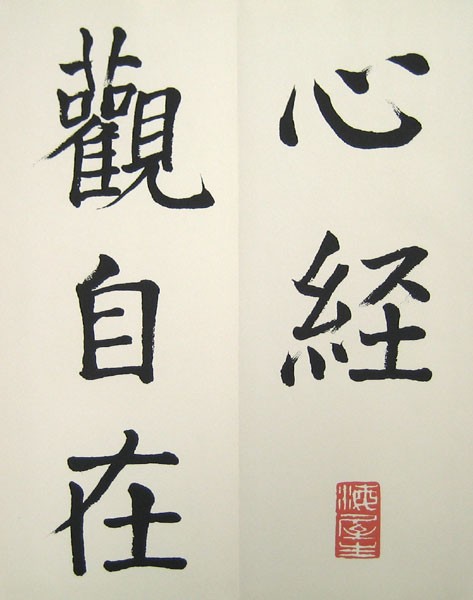 心経
觀自在